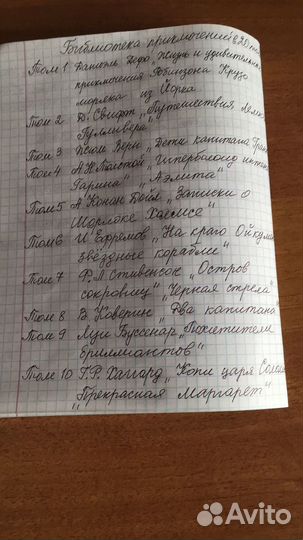 Библиотека приключений в 20 
Том 1 Даниель Дефо. Жизнь и удивительн
приключения Робинзона Крузо
моряка из Йорка
Том 2 Д. Свифт „Путешествия Лемю
Гулливера"
Том 3 Жюль Верн „Дети капитана Гран
Том 4 А.Н. Толстой „Гиперболоид инжен
Гарина" „Аэлита"
Том 5 А. Конан Дойл „Записки о
Шорлоке Холмсе"
Том 6 И. Ефремов „На краю Ойкумен
звёздные корабли"
Том 7 Р.Л. Стивенсон „Остров
сокровищ" „Черная стрела"
Том 8 В. Каверин „Два капитана"
Том 9 Луи Буссенар „Похитители
бриллиантов"
Том 10 Г.Р. Хаггард „Копи царя Солом
„Прекрасная Маргарет"
Avito